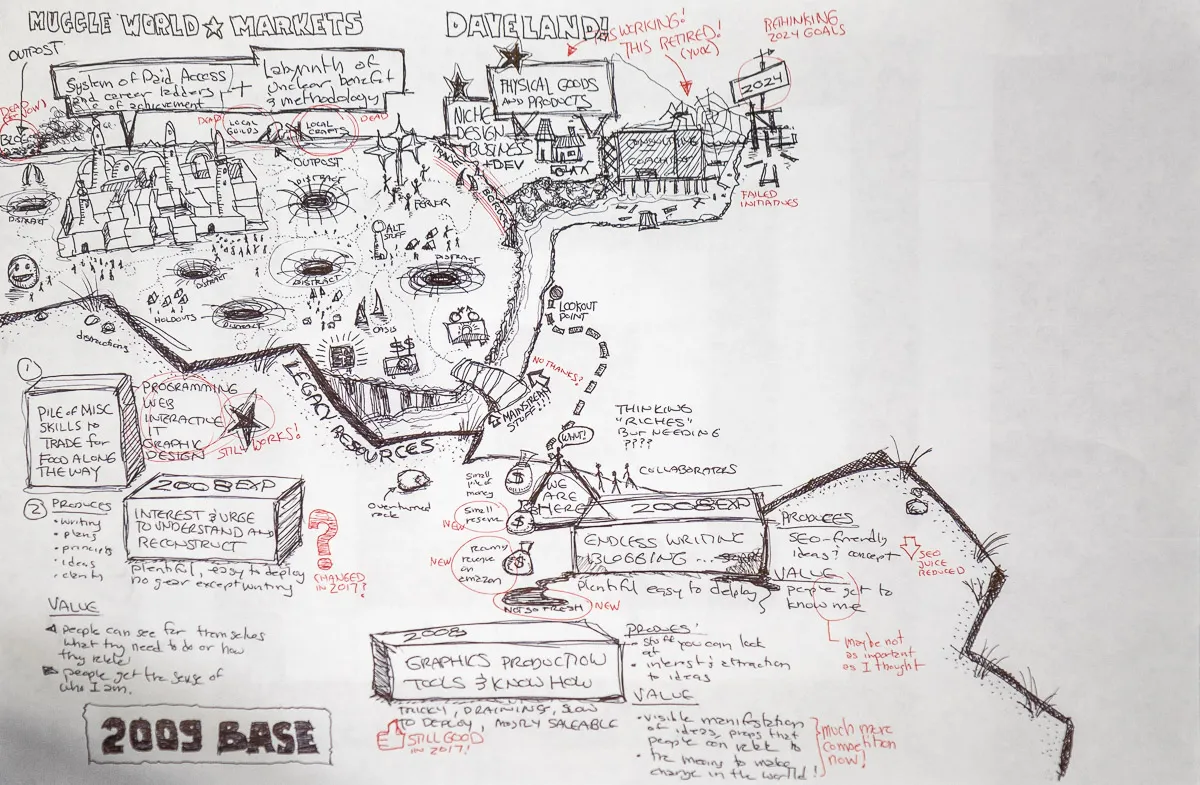 MUGGLE WORLD ★ MARKETS
DAVELAND!
OUTPOST
System of Paid Access
and career ladders
of achievement
+
Labyrinth of
Unclear benefit
& methodology
PHYSICAL GOODS
AND PRODUCTS
NICHE
DESIGN
BUSINESS
+ DEV
WORKING!
THIS RETIRED!
(YUCK)
RETHINKING
2024 GOALS
2024
FAILED
INITIATIVES
BLOG
DEAD
LOCAL
GUILDS
LOCAL
CRAFTS
DEAD
OUTPOST
DISTRACT
DISTRACT
ALT
STUFF
DISTRACT
DISTRACT
DISTRACT
DISTRACT
HOLDOUTS
OASIS
$$
distractions
LOOKOUT
POINT
NO THANKS?
MAINSTREAM
STUFF!!
LEGACY
RESOURCES
1
PILE of MISC
SKILLS to
TRADE for
FOOD ALONG
THE WAY
PROGRAMMING
WEB
INTERACTIVE
IT
GRAPHIC
DESIGN
STILL WORKS!
2
PRODUCES
• writing
• plans
• principles
• ideas
• clarity
2008 EXP
INTEREST & URGE
TO UNDERSTAND AND
RECONSTRUCT
plentiful, easy to deploy
no gear except writing
?
CHANGED
IN 2017?
VALUE
people can see for themselves
what they need to do or how
they relate
people get the sense of
who I am.
2009 BASE
Overturned
rock
THINKING
"RICHES"
BUT NEEDING
????
WANT!
COLLABORATORS
WE
ARE
HERE
$
Small
money
NEW
Small
reserve
$
NEW
revenue
on
amazon
$
NOT SO FRESH
NEW
2008 EXP
ENDLESS WRITING
BLOGGING ...
Plentiful easy to deploy
PRODUCES
SEO-friendly
ideas & concept
SEO
JUICE
REDUCED
VALUE
people get to
know me
maybe not
as important
as I thought
2008
GRAPHICS PRODUCTION
TOOLS & KNOW HOW
TRICKY, DRAINING, SLOW
TO DEPLOY, MOSTLY SALEABLE
STILL GOOD
IN 2017!
stuff you can look
at
• interest & attraction
to ideas
VALUE
• visible manifestation
of ideas, props that
people can relate to
• the means to make
change in the world!
much more
competition
now!